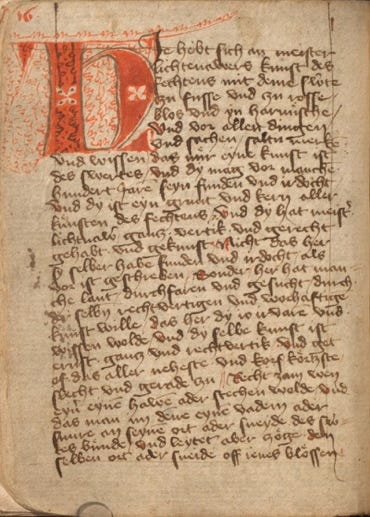 16
Hie hebt sich an meister
lichtenawers kunst des
fechtens mit deme swerte
czu fusse vnd czu rosse
blos vnd yn harnüsche
Vnd vor allen dingen
vnd sachen saltu merke
vnd wissen das nür eyne kunst ist
des swertes / vnd dy mag vor manche
hundert Jare seyn funden vnd irdocht
vnd dy ist eyn grunt vnd kern aller
künsten des fechtens / vnd dy hat meistr
lichtnaw gancz vertik vnd gerecht
gehabt vnd gekunst / Nicht das her
sy selber habe funden vnd irdocht als
vor ist geschreben / Sonder her hat man-
che lant durchfaren vnd gesucht durch
der selbn rechtvertigen vnd worhaftige
kunst wille / das her dy io irvare vnd
wissen wolde / vnd dy selbe kunst ist
ernst gancz vnd rechtvertik / Vnd get
of das aller neheste vnd körczste
slecht vnd gerade czu / Recht zam wen
eyner eyne hawe ader stechen wolde / vnd
das man im dene eyne vadem ader
snure an seyne ort ader sneyde des swer-
tes bünde / vnd leytet ader czöge den
selben ort ader sneide off ienes blössen